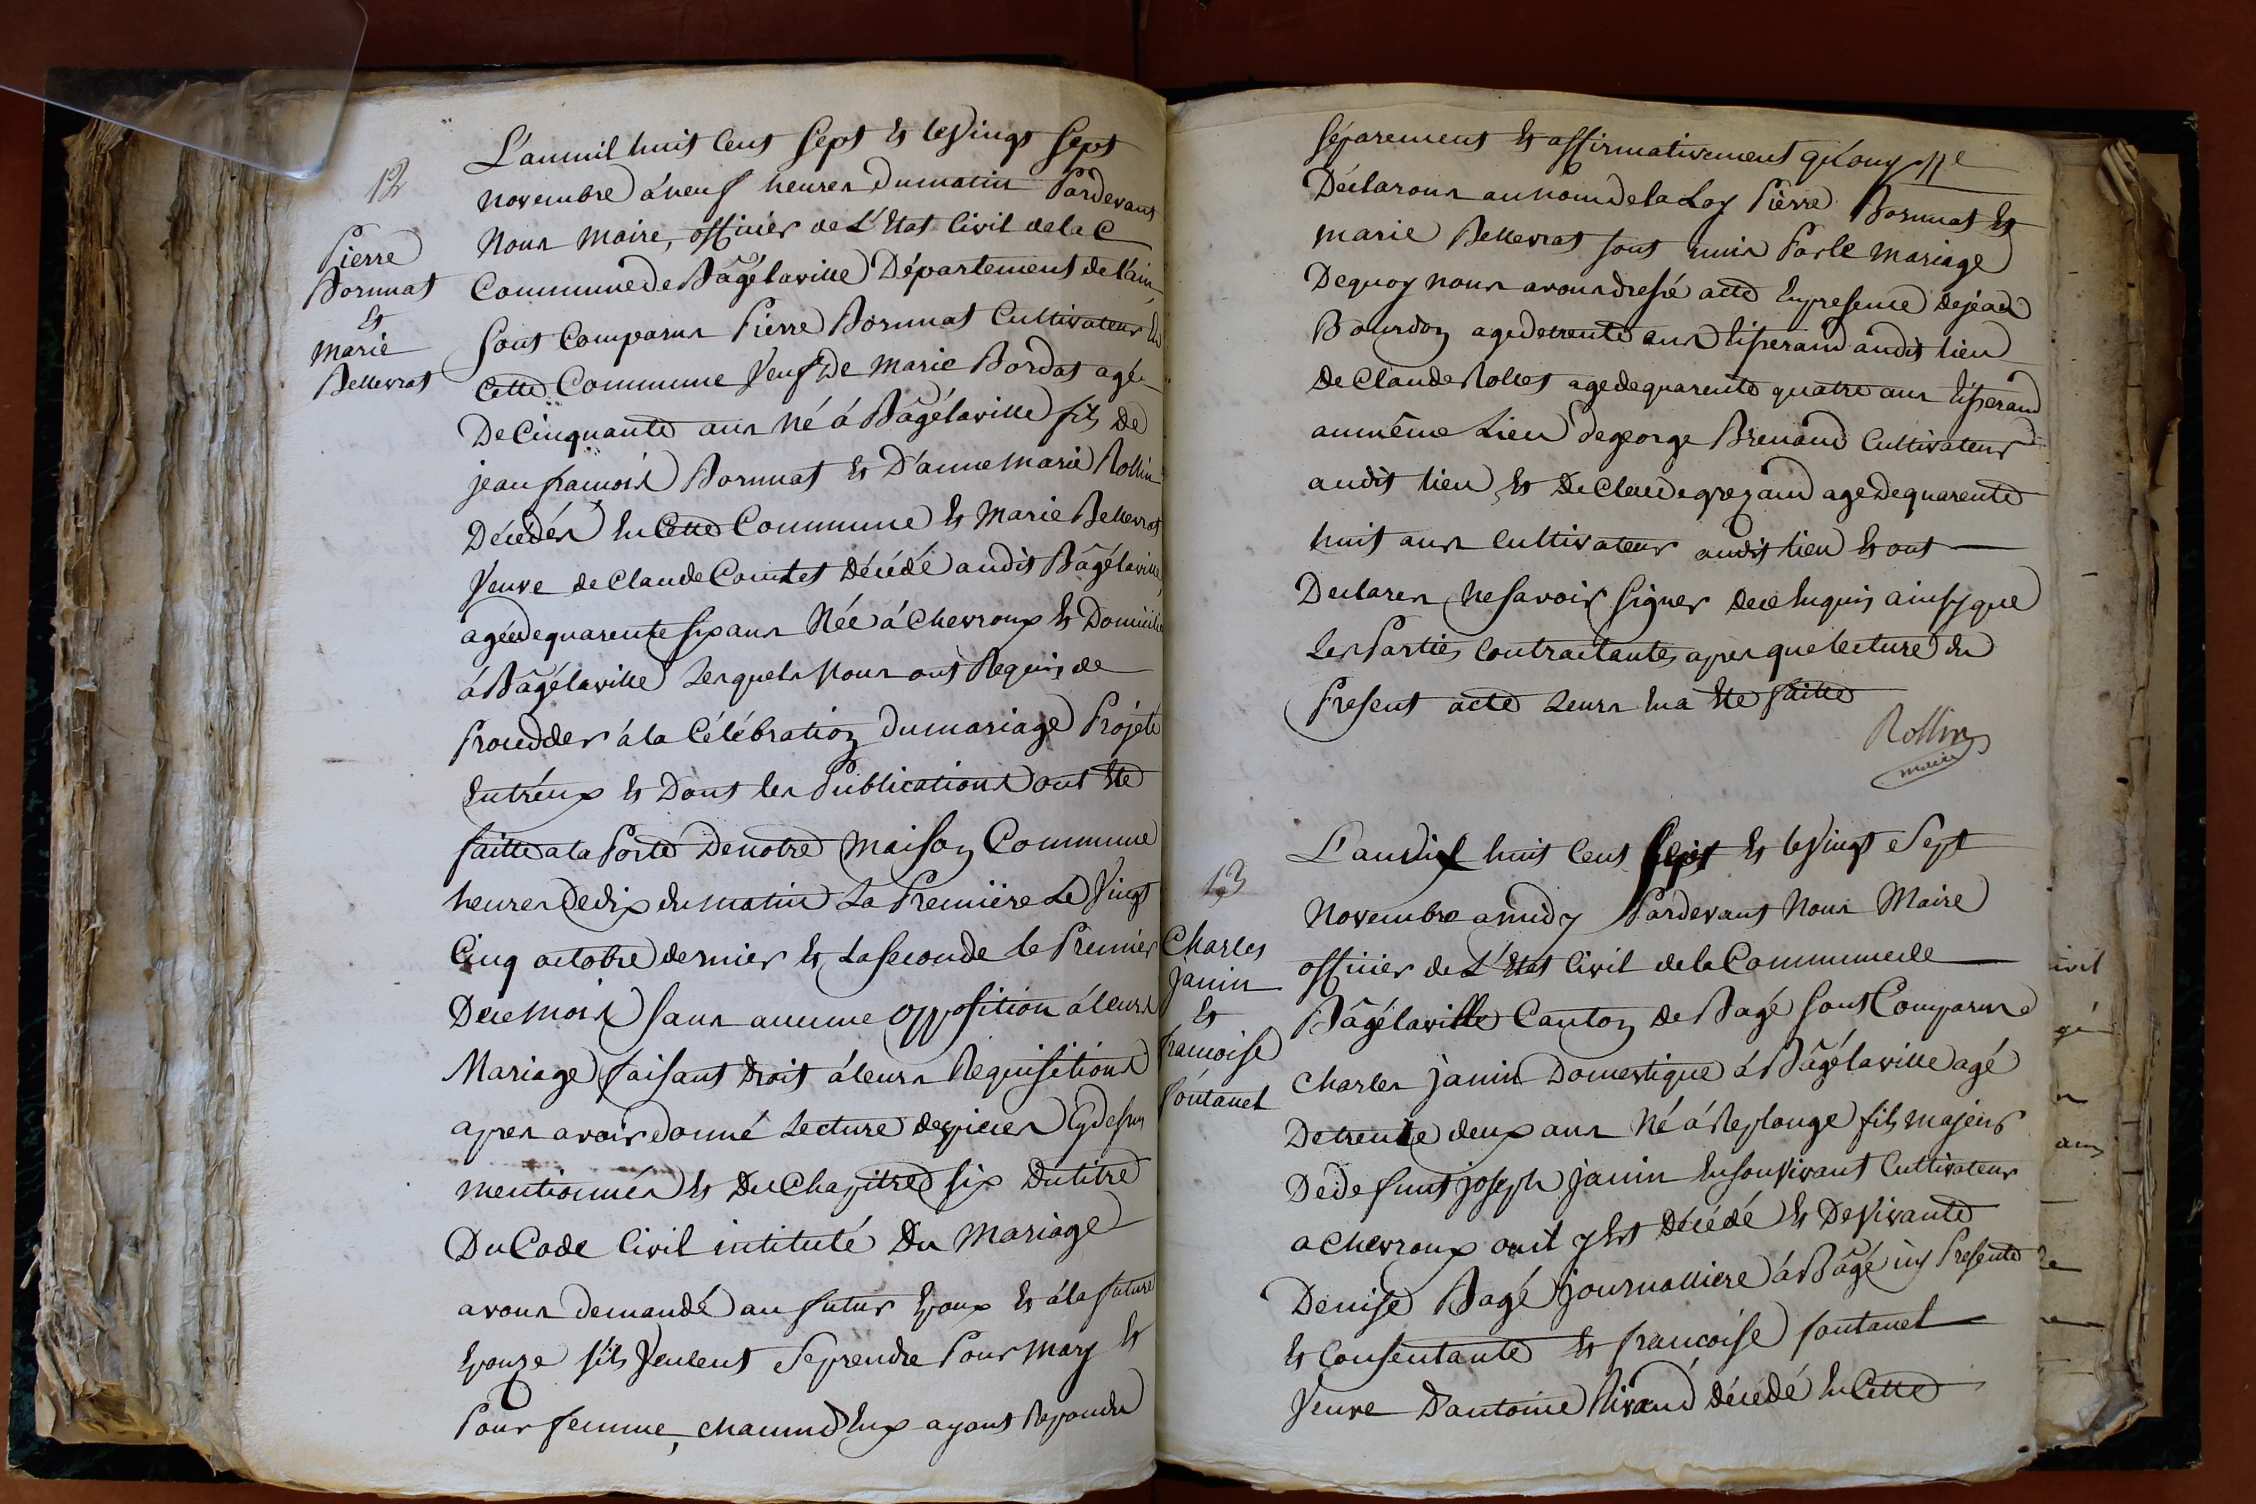 12
Pierre
Bornuat
Et
marie
Bellevrat
L'an mil huit Cent Sept Et le Vingt Sept
novembre à neuf heures du matin Pardevant
Nous Maire, officier de L'Etat Civil de la C
Commune de Bâgélaville Département de l'ain,
Sont Comparus Pierre Bornuat Cultivateur En
Cette Commune Veuf De Marie Bordat agé
De Cinquante ans Né á Bâgélaville fils De
jean francois Bornuat Et D'anne Marie Rollin
Décédés En Cette Commune Et Marie Bellevrat
Veuve de Claude Comtet Décédé audit Bâgélaville,
agée de quarente six ans Née á Chevroux Et Domicilié
á Bâgélaville Lesquels Nous ont Requis de
Proceder á la Célébration Du mariage Projeté
Entréux Et Dont les Publications ont Eté
faitte a la Porte De notre Maison Commune
heures De dix du matin La Premiëre Le Vingt
Cinq octobre dernier Et La Seconde le Premier
De ce Mois Sans aucune opposition á leurs
Mariage faisant Droit á leurs Requisitions
apres avoir donné Lecture des pieces Cy dessus
mentionnés Et Du Chapitre six Du titre
Du Code Civil intitulé Du Mariage
avons demandé au futur Epoux Et á la future
Epouze s'ils Veulent Se prendre Pour Mary Et
Pour femme, chacun d'Eux ayant Repondu
Séparement Et affirmativement qu'ouy
Déclarons au nom de la Loy Pierre Bornuat Et
Marie Bellevrat sont unis Par le Mariage
De quoy nous avons dressé acte En presence De jean
Bourdon age de trente ans tisserand audit lieu
De Claude Rollet age de quarente quatre ans tisserand
au même Lieu De george Brenaud Cultivateur
audit lieu Et De Claude grezaud age De quarente
huit ans Cultivateur audit lieu Et ont
Declares Ne Savoir Signer De ce Enquis ainsy que
Les Parties Contractantes apres que lecture du
Present acte Leurs En a Eté faitte
Rollin
maire
13
Charles
Janin
Et
francoise
fontanel
L'an dix huit Cent Sept Et le Vingt Sept
Novembre a midy Pardevant Nous Maire
officier de L'Etat Civil de la Commune de
Bâgélaville Canton De Bagé Sont Comparus
Charles Janin Domestique á Bâgélaville agé
De trente deux ans Né á Replonge fils majeur
De defunt joseph Janin En son Vivant Cultivateur
a Chevroux ou il y Est Décédé Et De Vivante
Denise Bagé journalliere á Bâgé icy Presente
Et Consentante Et francoise fontanel
Veuve D'antoine Rivaud Décédé En Cette